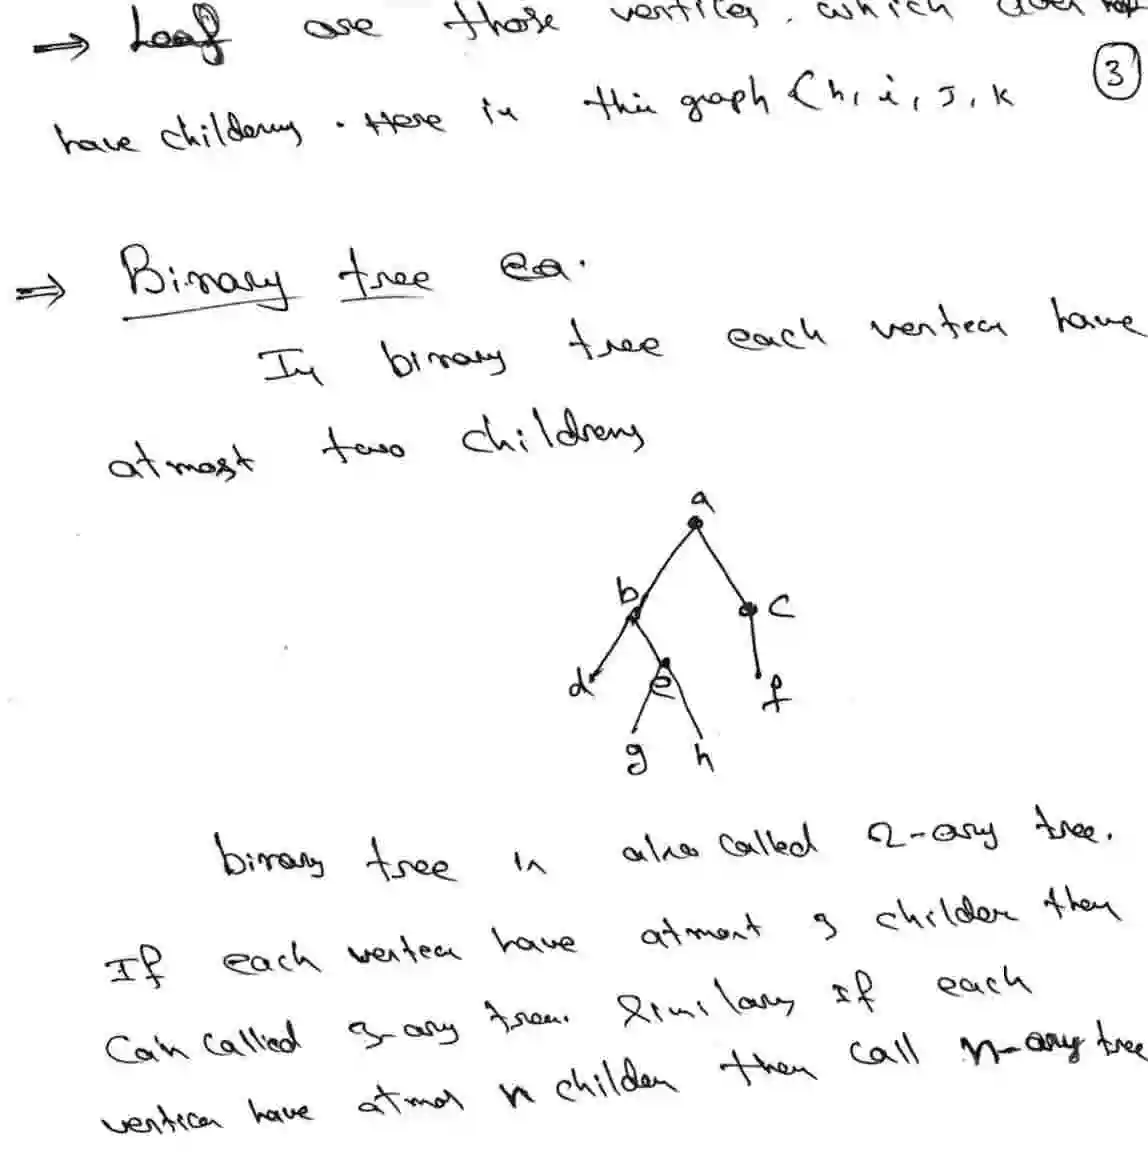 ⇒ Leaf are those vertices. which does not
have childerns. Here in this graph {h, i, J, K
3
⇒ Binary tree
In binary tree each vertex have
atmost two childrens
a
b
c
d
e
f
g
h
binary tree is also called 2-ary tree.
If each vertex have atmost 3 childer then
Can called 3-ary tree. Similary If each
vertex have atmos n childen then call n-ary tree